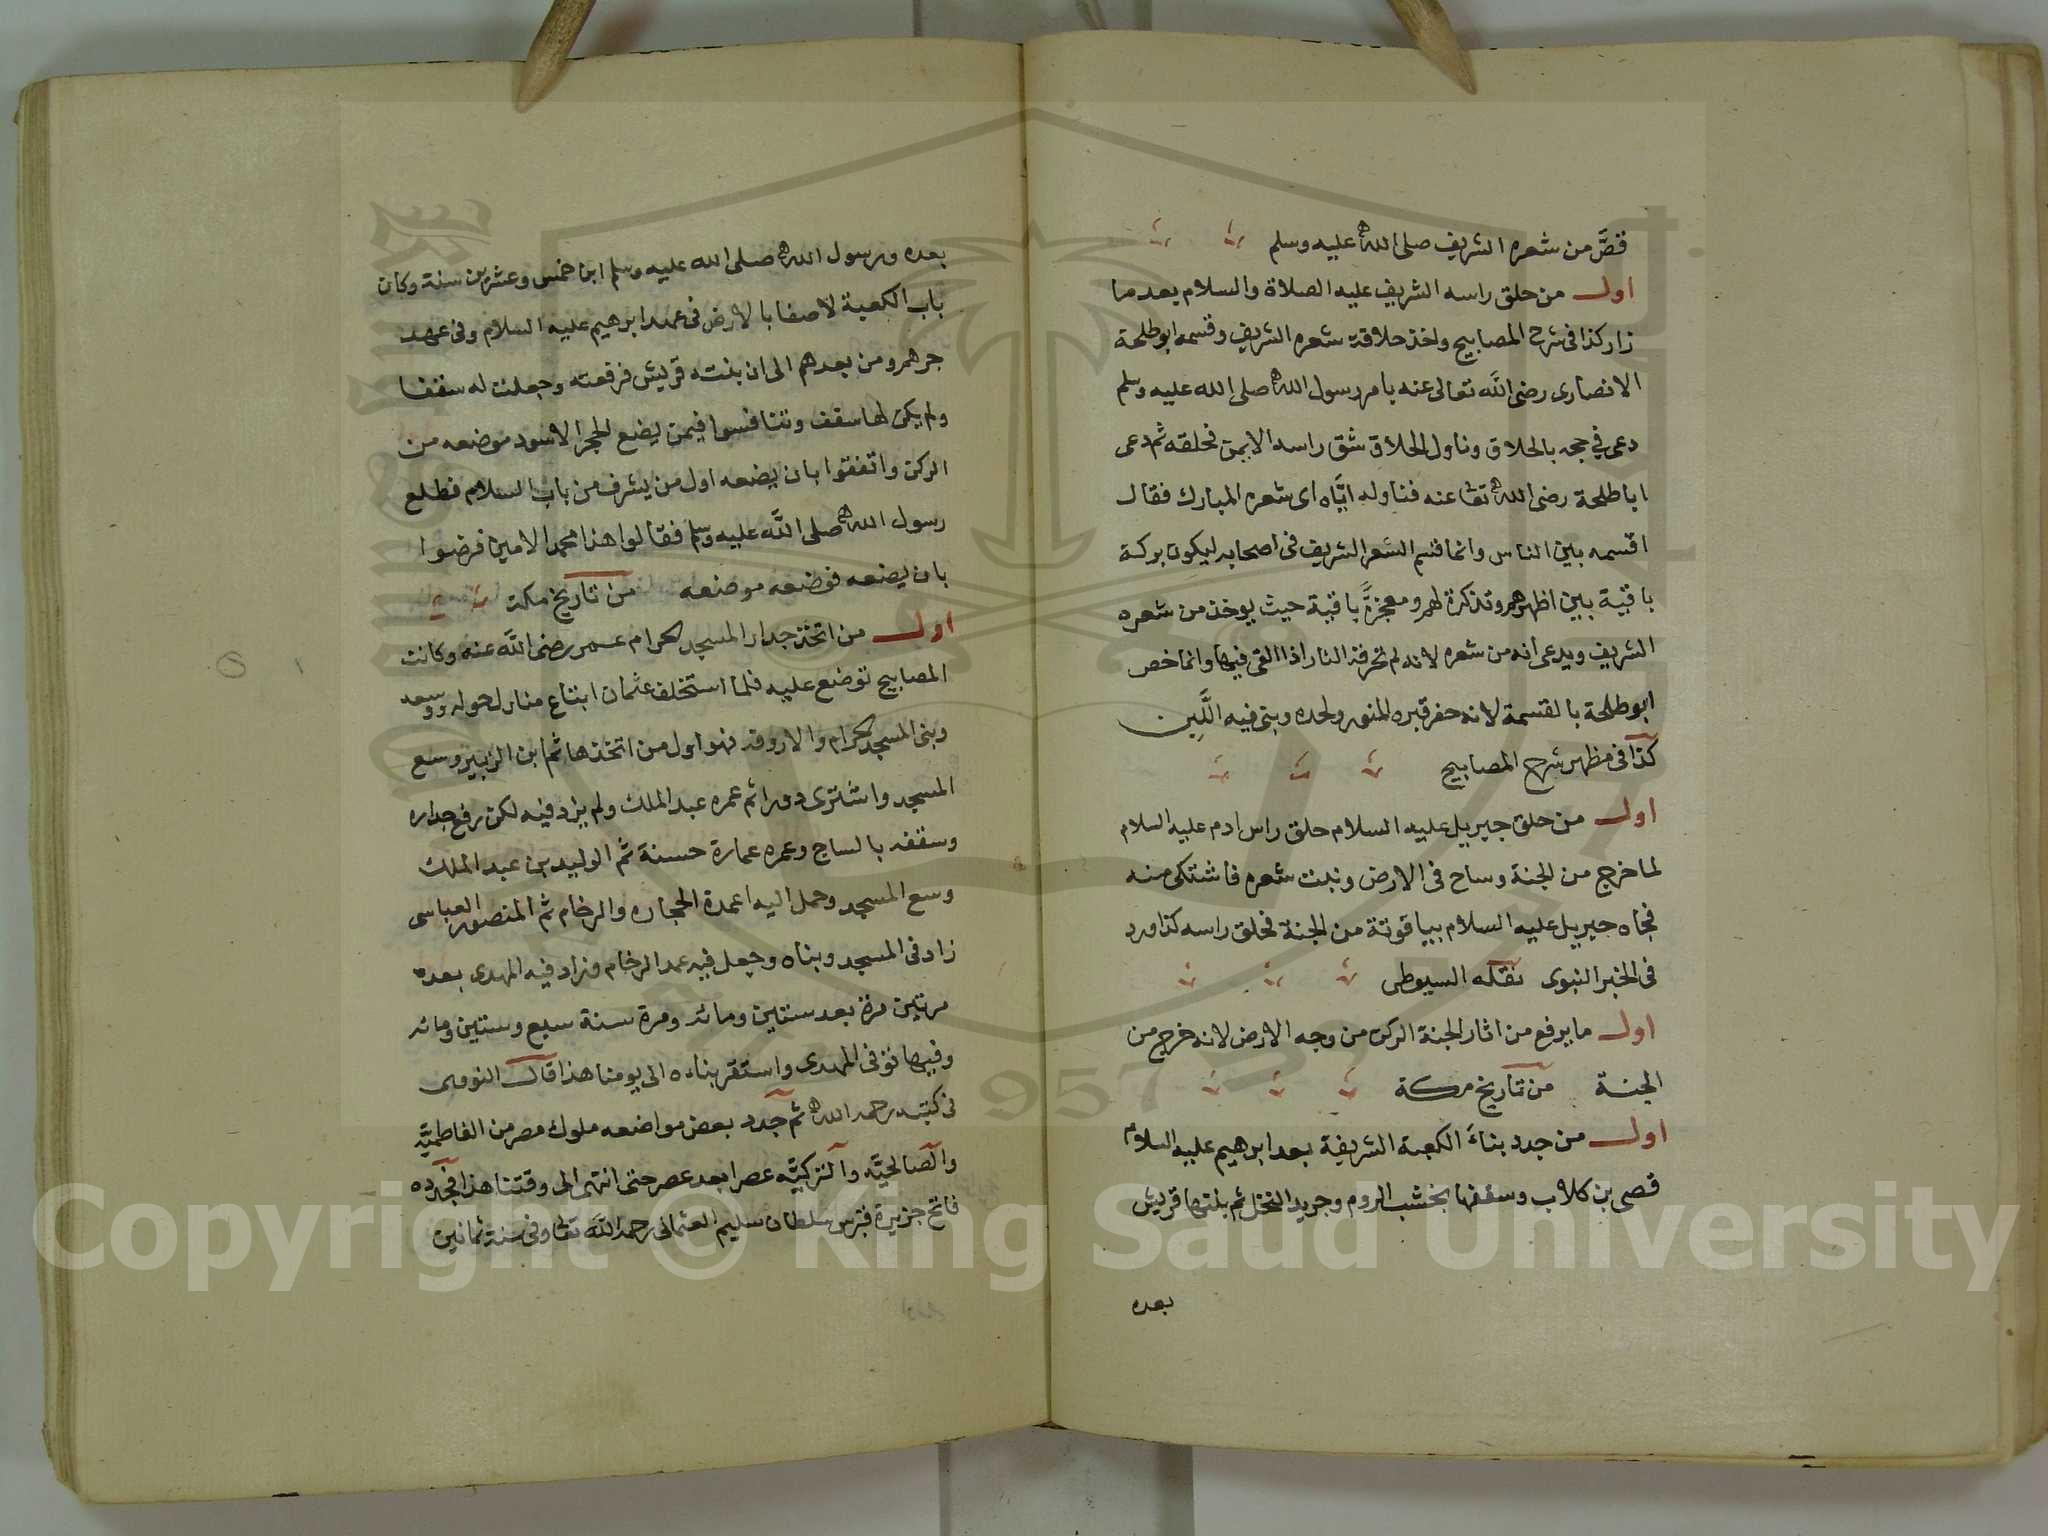 قصَّ من شعره الشريف صلى الله عليه وسلم
اول من حلق راسه الشريف عليه الصلاة والسلام بعد ما
زار كذا فى شرح المصابيح واخذ حلاقة شعره الشريف وقسمه ابو طلحة
الانصارى رضى الله تعالى عنه بامر رسول الله صلى الله عليه وسلم
دعى في حجه بالحلاق وناول الحلاق شق راسه الايمن فحلقه ثم دعى
ابا طلحة رضى الله تعا عنه فناوله ايَّاه اى شعره المبارك فقال
اقسمه بين الناس وانما قسم الشعر الشريف فى اصحابه ليكون بركة
باقية بين اظهرهم وتذكرة لهم ومعجزة باقية حيث يوخذ من شعره
الشريف ويدعى انه من شعره لانه لم تحرقه النار اذا القى فيها وانما خص
ابو طلحة بالقسمة لانه حفر قبره المنور ولحده وبنى فيه اللَّبِن
كذا فى مظهر شرح المصابيح
اول من حلق جبريل عليه السلام حلق راس ادم عليه السلام
لما خرج من الجنة وساح فى الارض ونبت شعره فاشتكى منه
فجاه جبريل عليه السلام بياقوتة من الجنة فحلق راسه كذا ورد
فى الخبر النبوى نقله السيوطى
اول ما يرفع من اثار الجنة الركن من وجه الارض لانه خرج من
الجنة من تاريخ مكة
اول من جدد بناءَ الكعبة الشريفة بعد ابرهيم عليه السلام
قصى بن كلاب وسقفها بخشب الروم وجريد النخل ثم بلتها قريش
بعده
بعده ورسول الله صلى الله عليه وسلم ابن خمس وعشرين سنة وكان
باب الكعبة لاصقا بالارض فى عهد ابرهيم عليه السلام وفى عهد
جرهم ومن بعدهم الى ان بنته قريش فرفعته وجعلت له سقفا
ولم يكن لها سقف وتنافسوا فيمن يضع الحجر الاسود موضعه من
الركن واتفقوا بان يضعه اول من يشرف من باب السلام فطلع
رسول الله صلى اللَّه عليه وسلم فقالوا هذا محمد الامين فرضوا
بان يضعه فوضعه موضعه من تاريخ مكة
اول من اتخذ جدار المسجد الحرام عمر رضى اللَّه عنه وكانت
المصابيح توضع عليه فلما استخلف عثمان ابتاع منازل حوله ووسعه
وبنى المسجد الحرام والاروقه فهو اول من اتخذها ثم ابن الزبير وسع
المسجد واشترى دورا ثم عمره عبد الملك ولم يزد فيه لكن رفع جداره
وسقفه بالساج وعمره عمارة حسنة ثم الوليد بن عبد الملك
وسع المسجد وحمل اليه اعمدة الحجاره والرخام ثم المنصور العباسى
زاد فى المسجد وبناه وجعل فيه عمد الرخام وزاد فيه المهدى بعده
مرتين مرة بعد ستين ومائه ومرة سنة سبع وستين ومائه
وفيها توفى المهدى واستقر بناءه الى يومنا هذا قال النووى
فى كتبه رحمه الله ثم جدد بعض مواضعه ملوك مصر من الفاطميَّه
والصالحيَّه والتركيَّه عصرا بعد عصر حتى انتهى الى وقتنا هذا فجدده
فاتح جزيرة قبرس سلطان سليم العثمانى رحمه اللَّه تعا وفى سنة ثمانين
Copyright © King Saud University
957